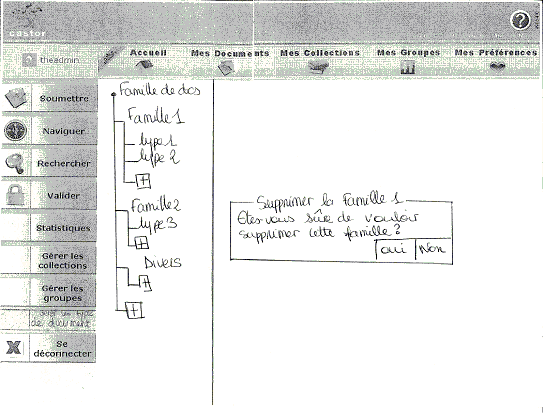 castor
theadmin
Accueil
Mes Documents
Mes Collections
Mes Groupes
Mes Préférences
Soumettre
Naviguer
Rechercher
Valider
Statistiques
Gérer les
collections
Gérer les
groupes
Gérer un type
de document
Se
déconnecter
Famille de docs
Famille 1
type 1
type 2
+
Famille 2
type 3
+
Divers
+
+
Supprimer la Famille 1
Etes vous sûre de vouloir
supprimer cette famille ?
oui Non